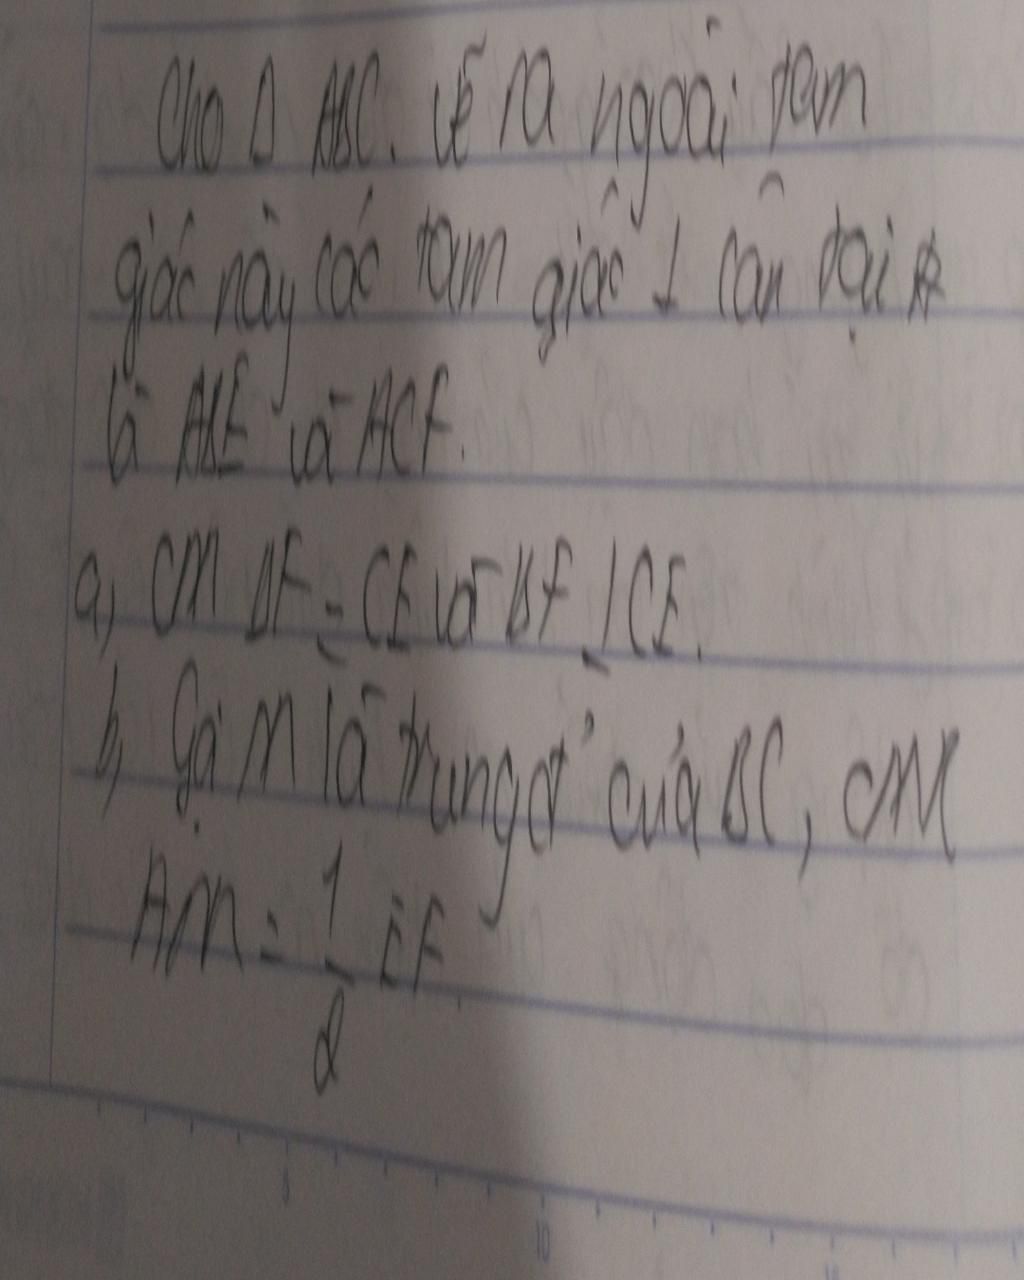 Cho Δ ABC. Vẽ ra ngoài tam
giác này các tam giác ⊥ cân tại A
là ABE và ACF.
a, CM BF = CE và BF ⊥ CE.
b, Gọi M là trung đ' của BC, CM
AM = 1/2 EF
10